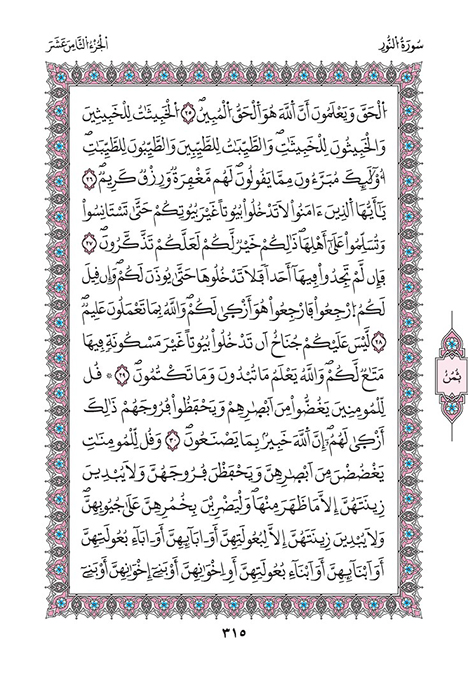 سُورَةُ النُّورِ
الْجُزْءُ الثَّامِنَ عَشَرَ
اَ۬لْحَقَّ وَيَعْلَمُونَ أَنَّ اَ۬للَّهَ هُوَ اَ۬لْحَقُّ اُ۬لْمُبِينُۖ ٢٥ اُ۬لْخَبِيثَٰتُ لِلْخَبِيثِينَ
وَالْخَبِيثُونَ لِلْخَبِيثَٰتِۖ وَالطَّيِّبَٰتُ لِلطَّيِّبِينَ وَالطَّيِّبُونَ لِلطَّيِّبَٰتِۖ
أُوْلَٰٓئِكَ مُبَرَّءُونَ مِمَّا يَقُولُونَۖ لَهُم مَّغْفِرَةٞ وَرِزْقٞ كَرِيمٞۖ ٢٦
يَٰٓأَيُّهَا اَ۬لذِينَ ءَامَنُواْ لَا تَدْخُلُواْ بُيُوتاً غَيْرَ بُيُوتِكُمْ حَتَّىٰ تَسْتَانِسُواْ
وَتُسَلِّمُواْ عَلَىٰٓ أَهْلِهَاۖ ذَٰلِكُمْ خَيْرٞ لَّكُمْ لَعَلَّكُمْ تَذَّكَّرُونَۖ ٢٧
فَإِن لَّمْ تَجِدُواْ فِيهَآ أَحَداٗ فَلَا تَدْخُلُوهَا حَتَّىٰ يُوذَنَ لَكُمْۖ وَإِن قِيلَ
لَكُمُ اُ۪رْجِعُواْ فَارْجِعُواْ هُوَ أَزْك۪ىٰ لَكُمْۖ وَاللَّهُ بِمَا تَعْمَلُونَ عَلِيمٞۖ
٢٨ لَّيْسَ عَلَيْكُمْ جُنَاحٌ اَن تَدْخُلُواْ بُيُوتاً غَيْرَ مَسْكُونَةٖ فِيهَا
مَتَٰعٞ لَّكُمْۖ وَاللَّهُ يَعْلَمُ مَا تُبْدُونَ وَمَا تَكْتُمُونَۖ ٢٩ ۞ قُل
لِّلْمُومِنِينَ يَغُضُّواْ مِنَ اَبْصٰ۪رِهِمْ وَيَحْفَظُواْ فُرُوجَهُمْۖ ذَٰلِكَ
أَزْك۪ىٰ لَهُمُۥٓۖ إِنَّ اَ۬للَّهَ خَبِيرُۢ بِمَا يَصْنَعُونَۖ ٣٠ وَقُل لِّلْمُومِنَٰتِ
يَغْضُضْنَ مِنَ اَبْصٰ۪رِهِنَّ وَيَحْفَظْنَ فُرُوجَهُنَّ وَلَا يُبْدِينَ
زِينَتَهُنَّ إِلَّا مَا ظَهَرَ مِنْهَاۖ وَلْيَضْرِبْنَ بِخُمُرِهِنَّ عَلَىٰ جُيُوبِهِنَّۖ
وَلَا يُبْدِينَ زِينَتَهُنَّ إِلَّا لِبُعُولَتِهِنَّ أَوَ اٰبَآئِهِنَّ أَوَ اٰبَآءِ بُعُولَتِهِنَّ
أَوَ اَبْنَآئِهِنَّ أَوَ اَبْنَآءِ بُعُولَتِهِنَّ أَوِ اِخْوَٰنِهِنَّ أَوْ بَنِےٓ إِخْوَٰنِهِنَّ أَوْ بَنِےٓ
ثُمُن
٣١٥